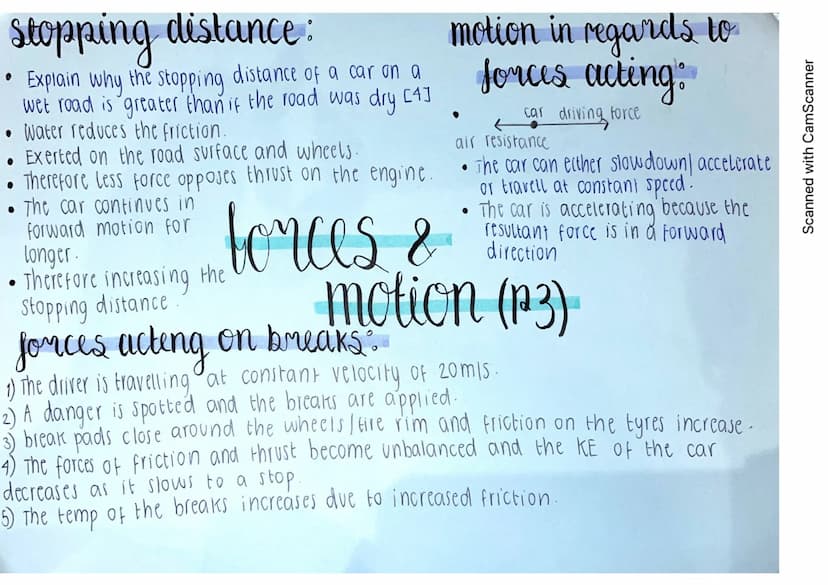 stopping distance:
• Explain why the stopping distance of a car on a
wet road is greater than if the road was dry [4]
• Water reduces the friction.
• Exerted on the road surface and wheels.
• Therefore less force opposes thrust on the engine.
• The car continues in
forward motion for
longer.
• Therefore increasing the
stopping distance.
motion in regards to
forces acting:
• car driving force
air resistance
• The car can either slowdown/accelerate
or travell at constant speed.
• The car is accelerating because the
resultant force is in a forward
direction
forces &
motion (P3)
forces acting on breaks:
1) The driver is travelling at constant velocity of 20m/s.
2) A danger is spotted and the breaks are applied.
3) break pads close around the wheels/tire rim and friction on the tyres increase.
4) The forces of friction and thrust become unbalanced and the KE of the car
decreases as it slows to a stop.
5) The temp of the breaks increases due to increased friction.
Scanned with CamScanner